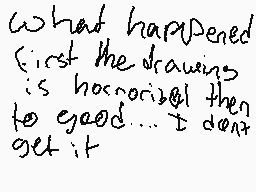 what happened
first the drawing
is horroribal then
to good.... I dont
get it